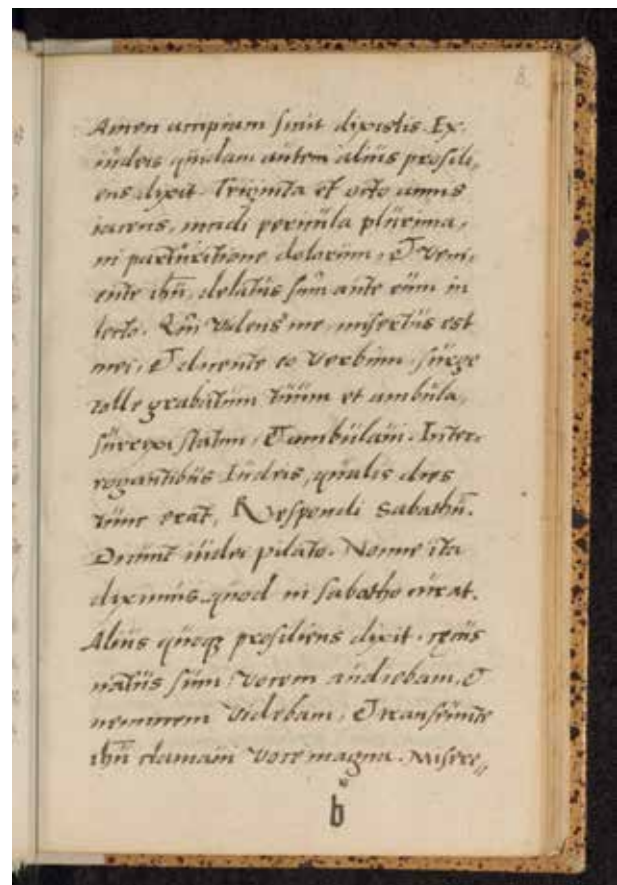 8
Amen accipiam sicut dixistis. Ex
iudeis quidam autem alius prosili„
ens dixit. Triginta et octo annis
iacens, inuadi per multa plurima,
in parturitione dolorum, & veni„
ente ihū, delatus sum ante eum in
lecto. Qui videns me, misertus est
mei, & dicente eo verbum. surge
tolle grabatum tuum et ambula,
surrexi statim, & ambulaui. Inter„
rogantibus Iudeis, qualis dies
tunc erat, Respondi sabathū.
Dicunt iudei pilato. Nonne ita
diximus. quod in sabatho curat.
Alius quoqȝ prosiliens dixit. cecus
natus sum: vocem audiebam, &
neminem videbam, & transeunte
ihū clamaui voce magna. Misere„
b